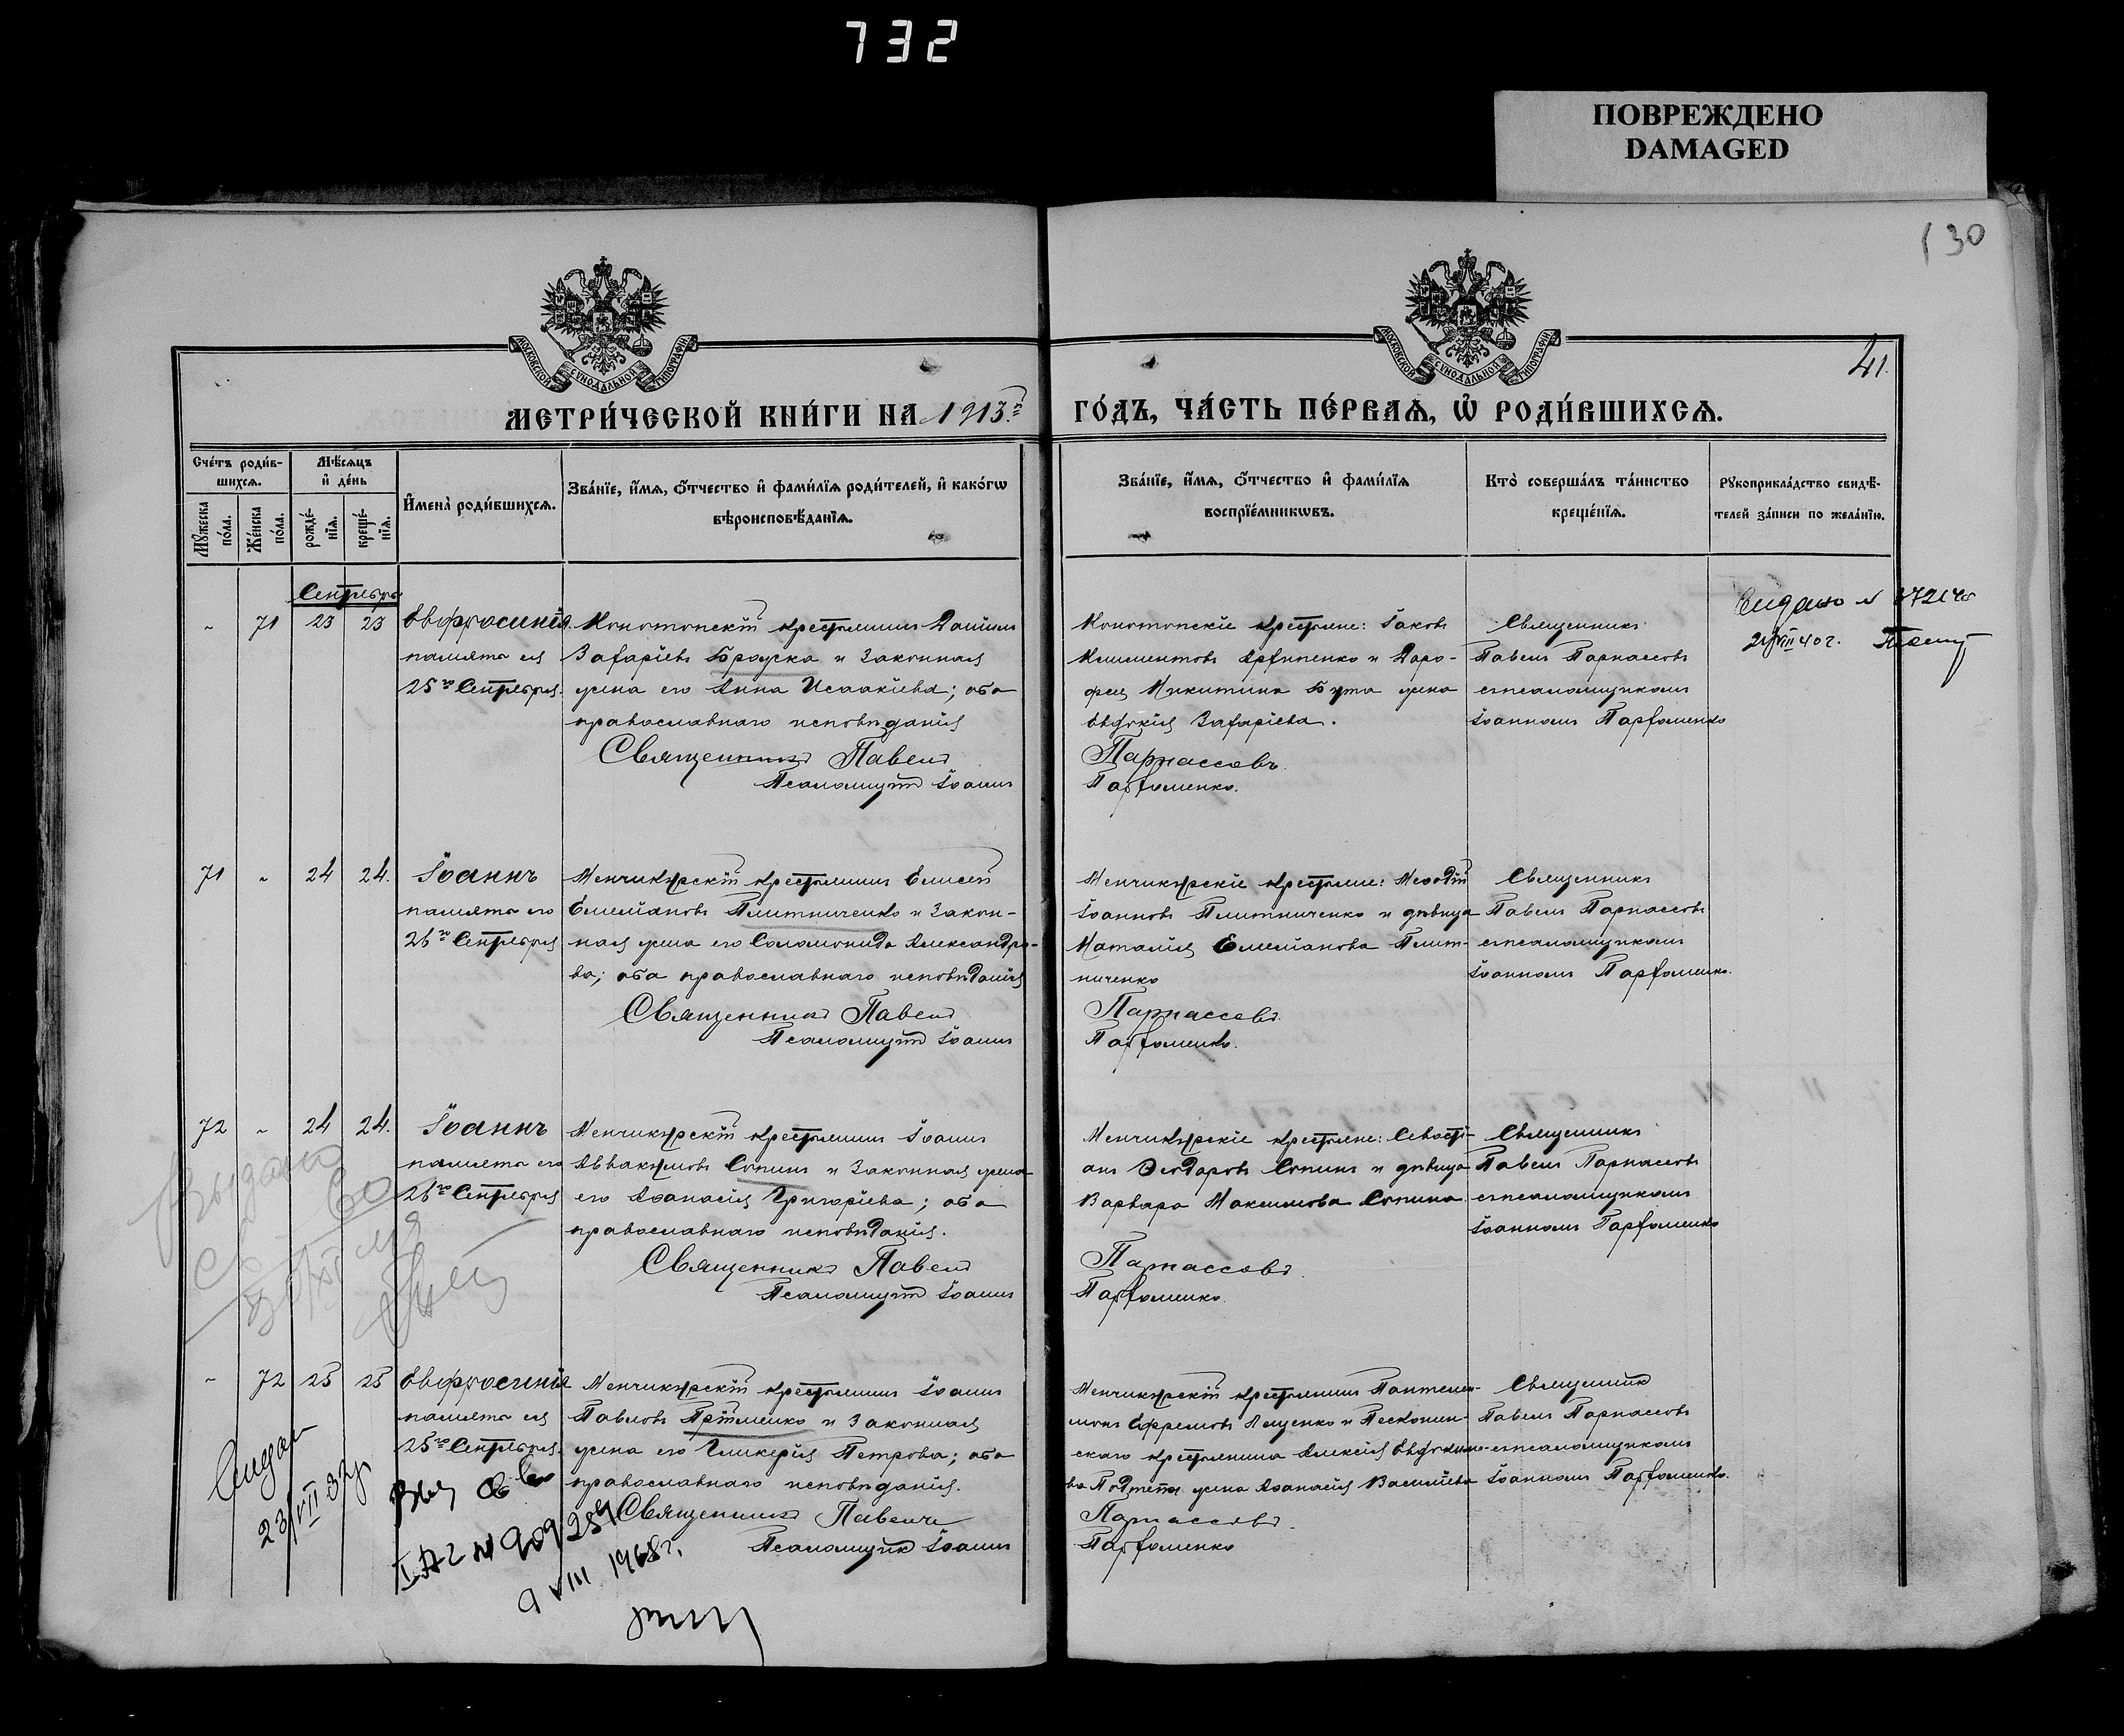 732
ПОВРЕЖДЕНО
DAMAGED
130
41.
МОСКОВСКОЙ СѴНОДАЛЬНОЙ ТИПОГРАФІИ
МОСКОВСКОЙ СѴНОДАЛЬНОЙ ТИПОГРАФІИ
МЕТРИ́ЧЕСКОЙ КНИ́ГИ НА 1913 г.
ГО́ДЪ, ЧА́СТЬ ПЕ́РВАѦ, Ѡ҆ РОДИ́ВШИХСѦ.
Сче́тъ роди́в-
шихсѧ.
Мѣ́сѧцъ
и҆ де́нь
И҆мена̀ роди́вшихсѧ.
Зва́нїе, и҆́мѧ, ѻ҆́тчество и҆ фами́лїѧ роди́телей, и҆ како́гѡ
вѣроисповѣ́данїѧ.
Мꙋ́жеска
по́ла.
Же́нска
по́ла.
рожде́-
нїѧ.
креще́-
нїѧ.
Зва́нїе, и҆́мѧ, ѻ҆́тчество и҆ фами́лїѧ
воспрїе́мникѡвъ.
Кто̀ соверша́лъ та́инство
креще́нїѧ.
Рꙋкоприкла́дство свидѣ́-
телей за́писи по жела́нїю.
Сентября
71 23 23 Евфросинія
память ея
25го Сентября.
Конотопскій крестьянинъ Даніилъ
Захаріевъ Бродска и законная
жена его Анна Исаакіева; оба
православнаго исповѣданія
Священникъ Павелъ
Псаломщикъ Іоаннъ
Конотопскіе крестьяне: Іаковъ
Климентовъ Архипенко и Доро-
фея Никитина Бута жена
Евдокія Захаріева.
Парнассовъ.
Парфоменко.
Священникъ
Павелъ Парнассовъ
съ псаломщикомъ
Іоанномъ Парфоменко
Видано №
VIII 40 г.
71 24 24. Іоаннъ
память его
26го Сентября
Менчикурскій крестьянинъ Елисей
Емеліановъ Плитниченко и закон-
ная жена его Соломонида Александро-
ва; оба православнаго исповѣданія
Священникъ Павелъ
Псаломщикъ Іоаннъ
Менчикурскіе крестьяне: Меѳодій
Іоанновъ Плитниченко и дѣвица
Наталія Емеліанова Плит-
ниченко
Парнассовъ.
Парфоменко.
Священникъ
Павелъ Парнассовъ
съ псаломщикомъ
Іоанномъ Парфоменко.
72 24 24. Іоаннъ
память его
26го Сентября
Менчикурскій крестьянинъ Іоаннъ
Аввакумовъ Сопинъ и законная жена
его Аѳанасія Григоріева; оба
православнаго исповѣданія.
Священникъ Павелъ
Псаломщикъ Іоаннъ
Менчикурскіе крестьяне: Севасті-
анъ Ѳеодоровъ Сопинъ и дѣвица
Варвара Максимова Сопина
Парнассовъ.
Парфоменко.
Священникъ
Павелъ Парнассовъ
съ псаломщикомъ
Іоанномъ Парфоменко
Выдано
72 25 25 Евфросинія
память ея
25го Сентября.
Менчикурскій крестьянинъ Іоаннъ
Павловъ и законная
жена его Гликерія Петрова; оба
православнаго исповѣданія.
Священникъ Павелъ
Псаломщикъ Іоаннъ
Менчикурскій крестьянинъ Пантелей-
монъ Ефремовъ Лященко и
скаго крестьянина Алексія Евдокимо-
ва жена Аѳанасія Василіева
Парнассовъ.
Парфоменко
Священникъ
Павелъ Парнассовъ
съ псаломщикомъ
Іоанномъ Парфоменко.
Видано
23/VII 32 р
Выд св во
I АС № 909259
9 VIII 1968 г.